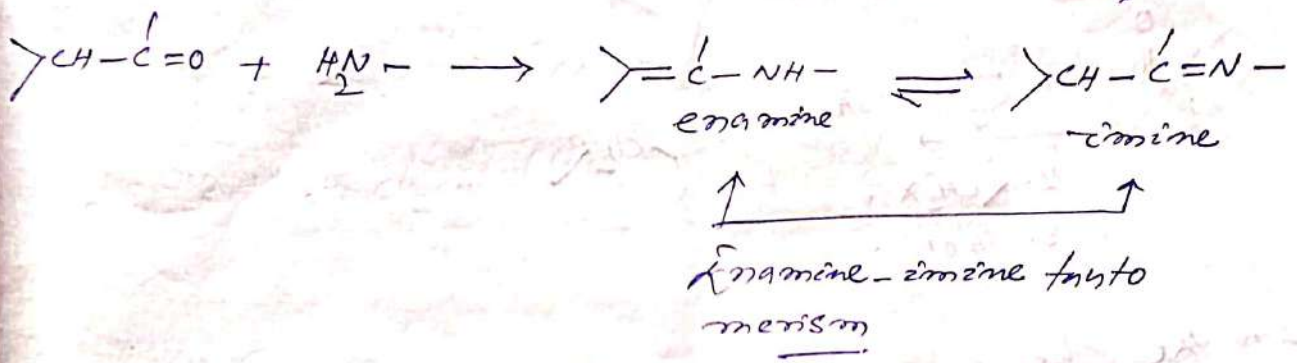 >CH-C=O + H2N- ⟶ >=C-NH- ⇌ >CH-C=N-
enamine imine
Enamine-imine tauto
merism